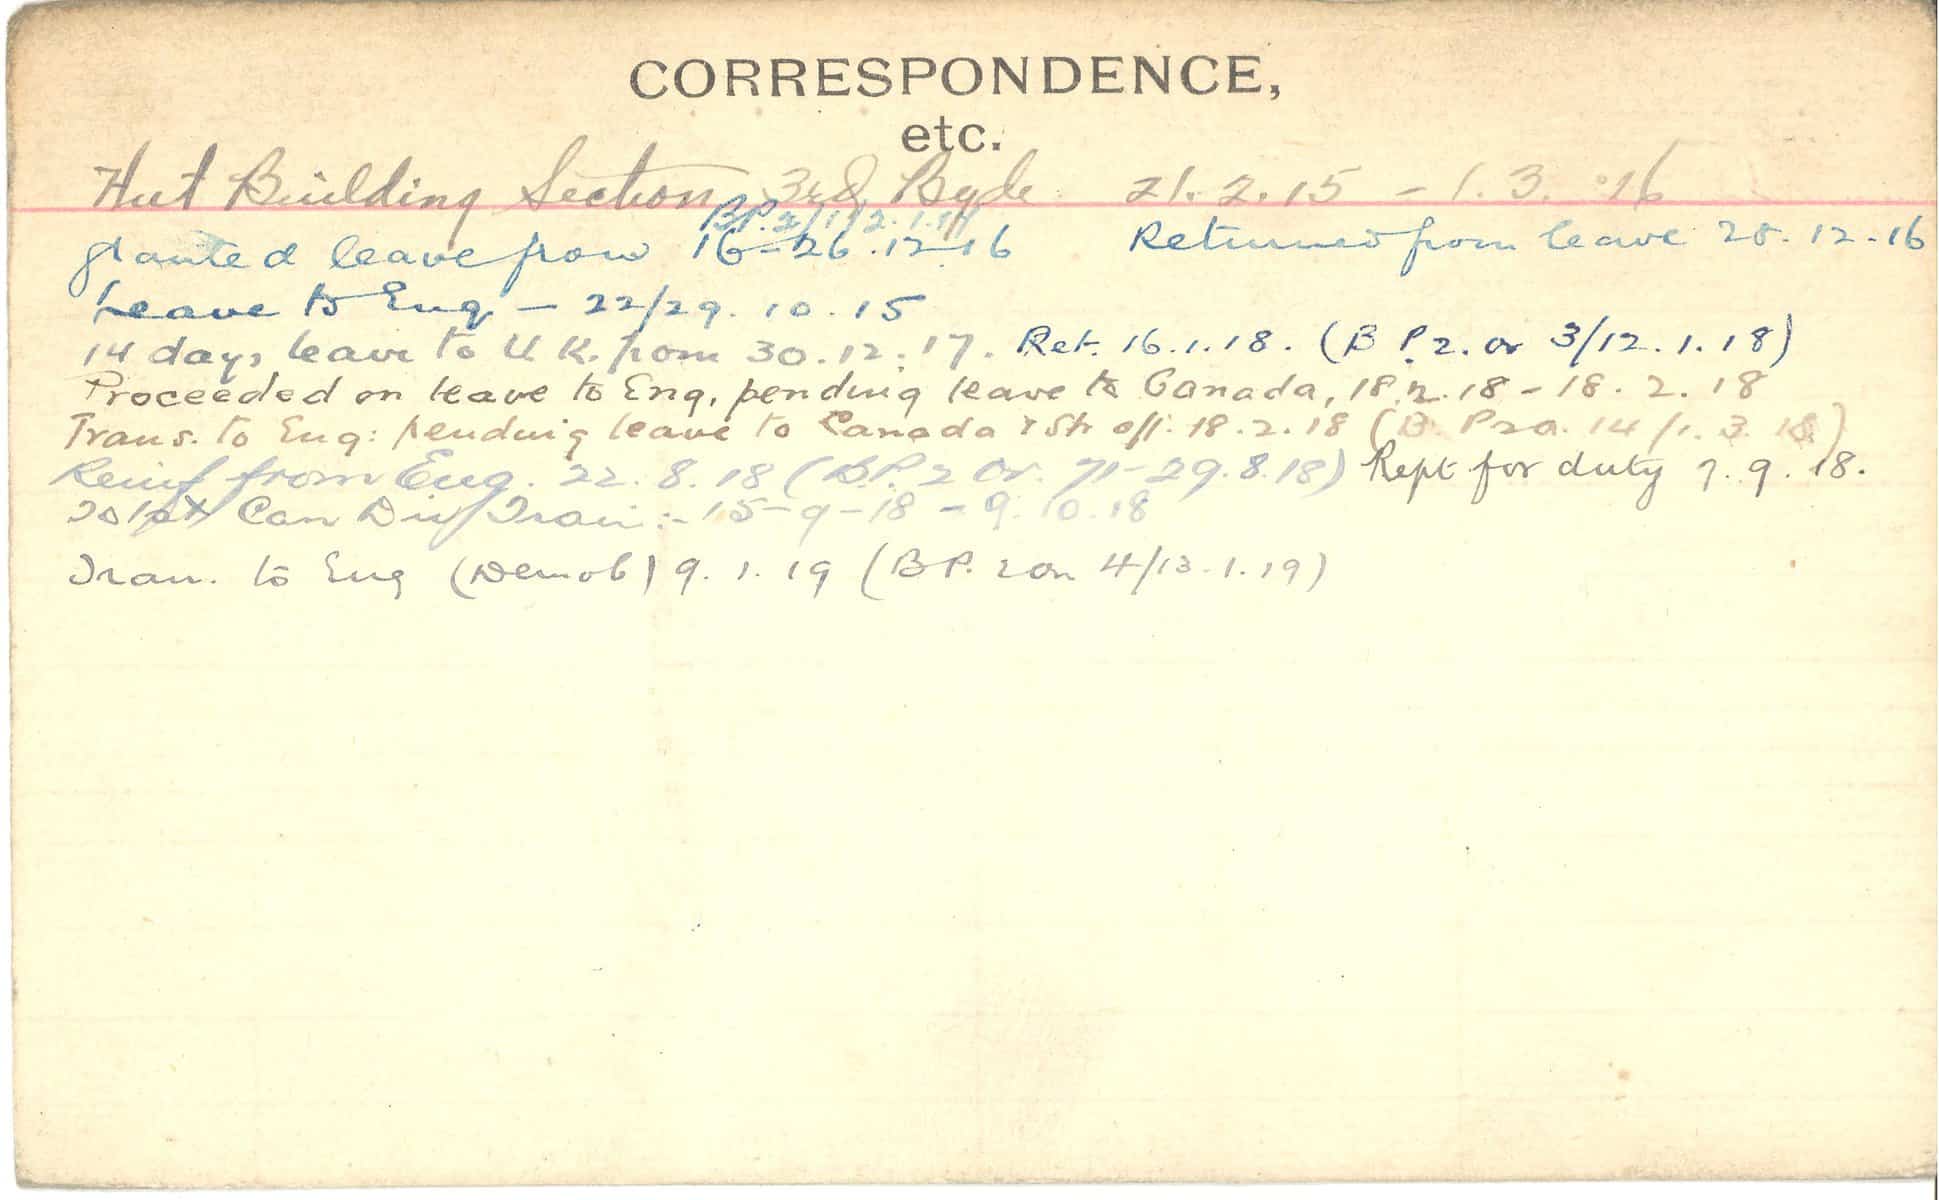 CORRESPONDENCE,
etc.
Hut Building Section 3rd Bgde 21.2.15 - 1.3.16
BP.2/1/12.1.17
granted leave from 16-26.12.16 Returned from leave 28.12.16
Leave to Eng - 22/29.10.15
14 days leave to U.K. from 30.12.17. Ret. 16.1.18. (B P.2. or 3/12.1.18)
Proceeded on leave to Eng, pending leave to Canada, 18.2.18 - 18.2.18
Trans. to Eng: pending leave to Canada & Str off: 18.2.18 (B. P2o. 14/1.3.18)
Reinf from Eng. 22.8.18 (B.P.2 Or. 71-29.8.18) Rept for duty 7.9.18.
To 1st Can Div Train:- 15-9-18 - 9.10.18
Tran. to Eng (Demob) 9.1.19 (BP. 2 on 4/13.1.19)